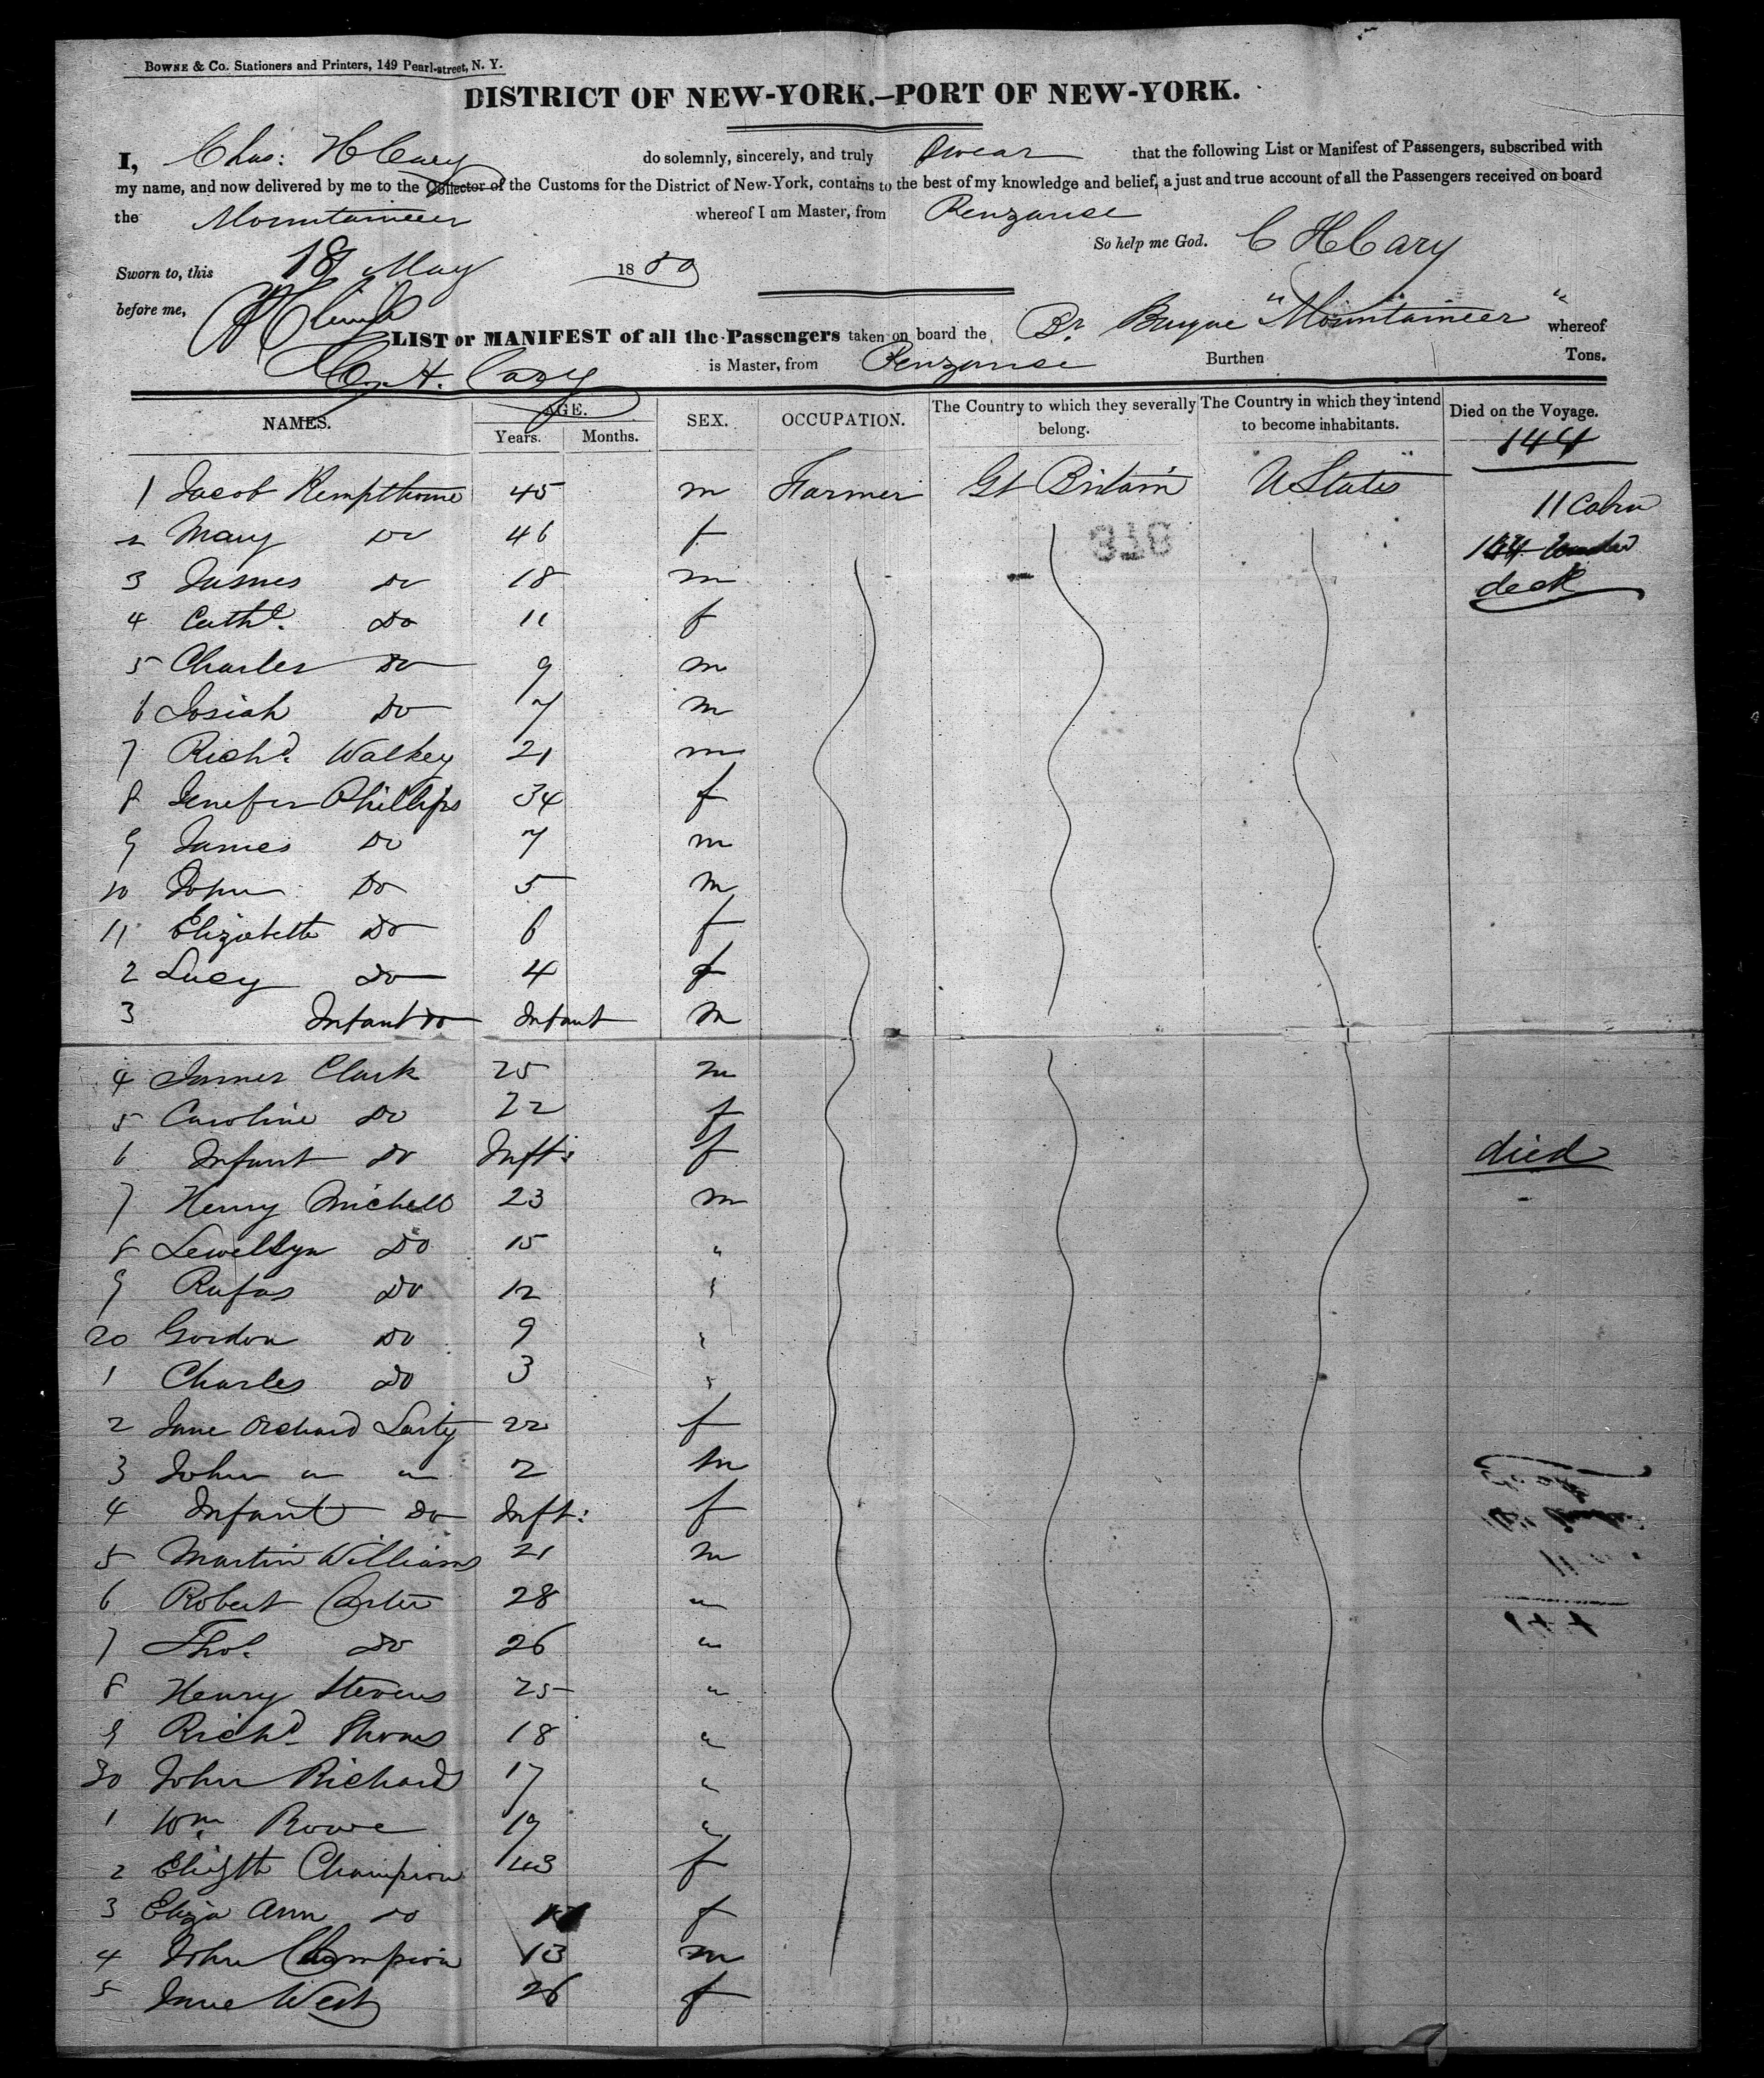 BOWNE & Co. Stationers and Printers, 149 Pearl-street, N. Y.
DISTRICT OF NEW-YORK.—PORT OF NEW-YORK.
I, Chas: H Cary do solemnly, sincerely, and truly Swear that the following List or Manifest of Passengers, subscribed with
my name, and now delivered by me to the Collector of the Customs for the District of New-York, contains to the best of my knowledge and belief, a just and true account of all the Passengers received on board
the Mountaineer whereof I am Master, from Penzance
So help me God. C H Cary
Sworn to, this 18 May 1850
before me,
LIST or MANIFEST of all the Passengers taken on board the Br Barque "Mountaineer" whereof
C. H. Cary is Master, from Penzance Burthen Tons.
NAMES. AGE. Years. Months. SEX. OCCUPATION. The Country to which they severally belong. The Country in which they intend to become inhabitants. Died on the Voyage.
144
1 Jacob Kempthorne 45 m Farmer Gt Britain U States
11 Cabin
2 Mary Do 46 f
under
3 James Do 18 m
deck
4 Cathe. Do 11 f
5 Charles Do 9 m
6 Josiah Do 7 m
7 Richd. Walkey 21 m
8 Jenefer Phillips 34 f
9 James Do 7 m
10 John Do 5 m
11 Elizabeth Do 6 f
2 Lucy Do 4 f
3 Infant Do Infant m
4 James Clark 25 m
5 Caroline Do 22 f
6 Infant Do Inft: f died
7 Henry Michell 23 m
8 Lewellyn Do 15 "
9 Rufas Do 12 "
20 Gordon Do 9 "
1 Charles Do 3 "
2 Jane Orchard Larty 22 f
3 John " " 2 m
4 Infant Do Inft: f
5 Martin Williams 21 m
6 Robert Carter 28 "
7 Thos. Do 26 "
8 Henry Stevens 25 "
9 Richd. Thomas 18 "
30 John Richards 17 "
1 Wm. Rowe 19 "
2 Elizth Champion 43 f
3 Eliza Ann Do f
4 John Champion 13 m
5 Jane West 26 f